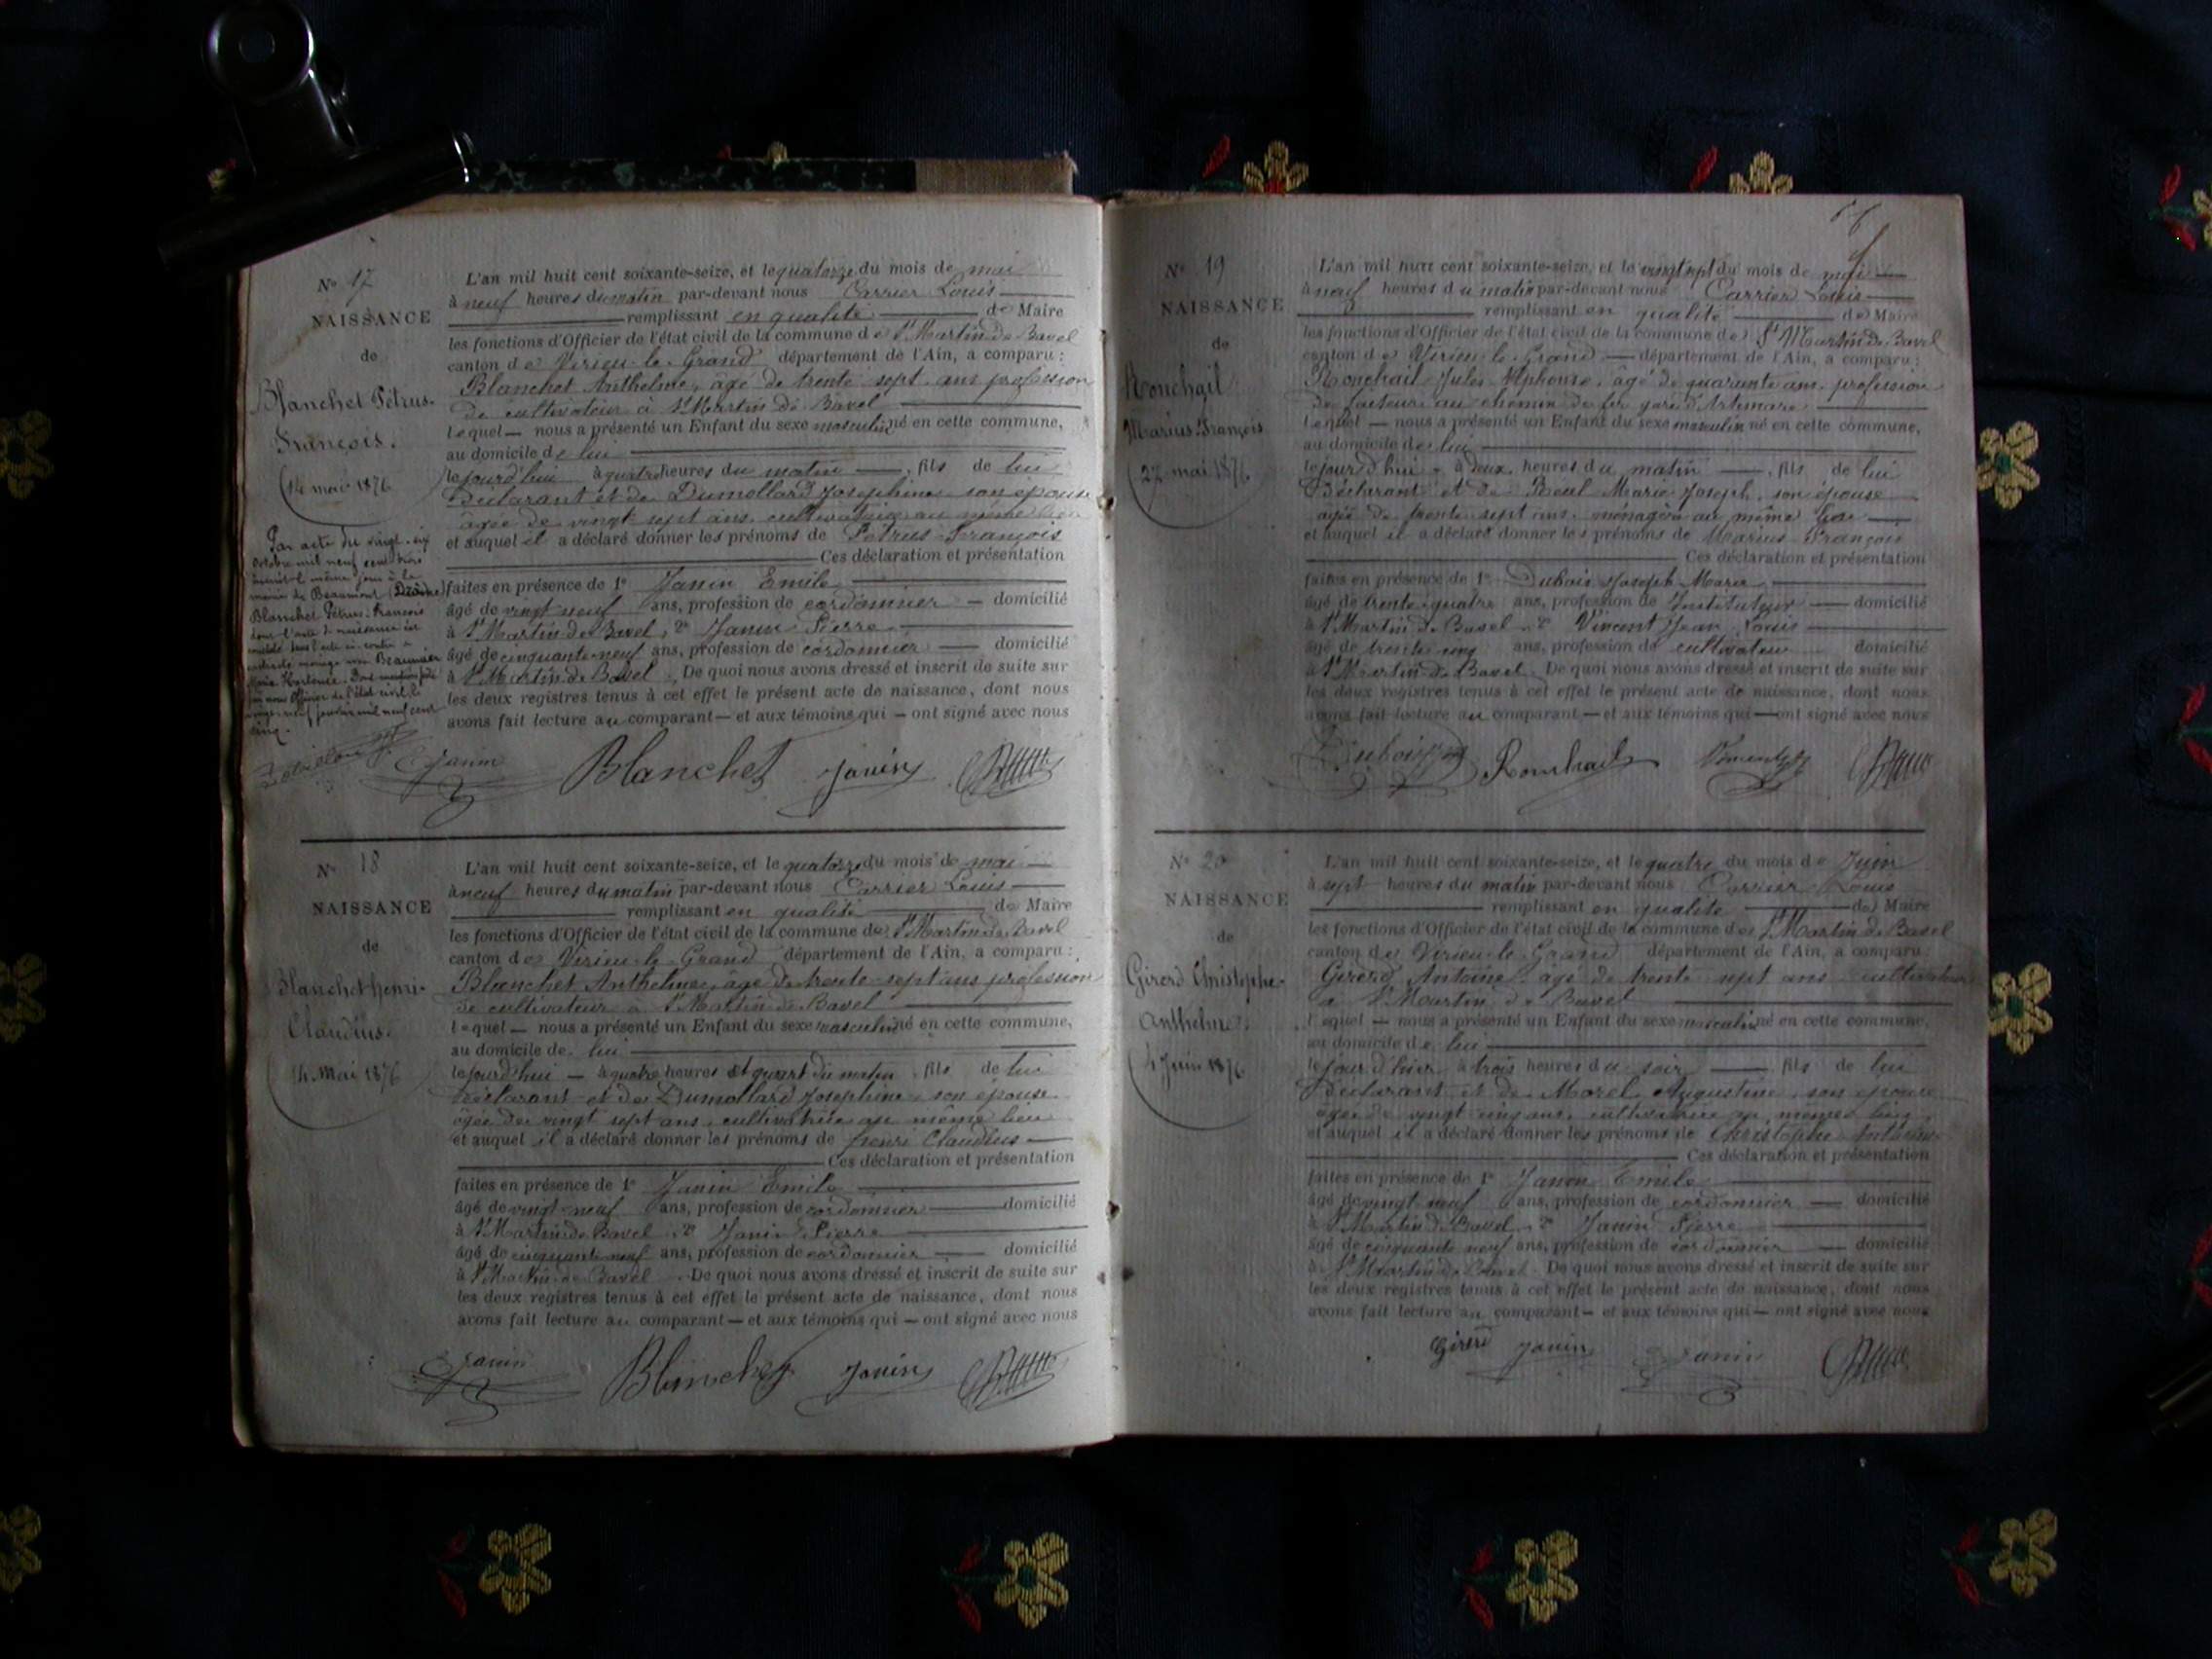 N° 17
NAISSANCE
de
Blanchet Pétrus-
François.
(14 mai 1876
Par acte du vingt-six
octobre mil neuf cent trois
même jour à la
mairie de Beaumont (Drôme)
Blanchet Pétrus-François
dont l'acte de naissance est
Marie Hortense. Dont mention faite
par nous Officier de l'état civil, le
vingt-neuf janvier mil neuf cent
cinq.
L'an mil huit cent soixante-seize, et le quatorze du mois de mai
à neuf heures du matin par-devant nous Carrier Louis
remplissant en qualité de Maire
les fonctions d'Officier de l'état civil de la commune de St Martin de Bavel
canton de Virieu-le-Grand département de l'Ain, a comparu :
Blanchet Anthelme, âgé de trente-sept ans profession
de cultivateur à St Martin de Bavel
lequel — nous a présenté un Enfant du sexe masculin né en cette commune,
au domicile de lui
le jourd'hui à quatre heures du matin —, fils de lui
Déclarant et de Dumollard Josephine son épouse
âgée de vingt sept ans, cultivatrice au même lieu
et auquel il a déclaré donner les prénoms de Pétrus-François
Ces déclaration et présentation
faites en présence de 1° Janin Emile
âgé de vingt neuf ans, profession de cordonnier — domicilié
à St Martin de Bavel, 2° Janin Pierre
âgé de cinquante-neuf ans, profession de cordonnier — domicilié
à St Martin de Bavel. De quoi nous avons dressé et inscrit de suite sur
les deux registres tenus à cet effet le présent acte de naissance, dont nous
avons fait lecture au comparant — et aux témoins qui — ont signé avec nous
Janin Blanchet Janin
N° 18
NAISSANCE
de
Blanchet henri-
Claudius.
14 Mai 1876
L'an mil huit cent soixante-seize, et le quatorze du mois de mai —
à neuf heures du matin par-devant nous Carrier Louis
remplissant en qualité de Maire
les fonctions d'Officier de l'état civil de la commune de St Martin de Bavel
canton de Virieu-le-Grand département de l'Ain, a comparu :
Blanchet Anthelme, âgé de trente-sept ans profession
de cultivateur à St Martin de Bavel
lequel — nous a présenté un Enfant du sexe masculin né en cette commune,
au domicile de lui
le jourd'hui — à quatre heures et quart du matin, fils de lui
Déclarant et de Dumollard Josephine son épouse
âgée de vingt sept ans, cultivatrice au même lieu
et auquel il a déclaré donner les prénoms de henri Claudius —
Ces déclaration et présentation
faites en présence de 1° Janin Emile
âgé de vingt-neuf ans, profession de cordonnier — domicilié
à St Martin de Bavel, 2° Janin Pierre
âgé de cinquante neuf ans, profession de cordonnier — domicilié
à St Martin de Bavel. De quoi nous avons dressé et inscrit de suite sur
les deux registres tenus à cet effet le présent acte de naissance, dont nous
avons fait lecture au comparant — et aux témoins qui — ont signé avec nous
Janin Blanchet Janin
N° 19
NAISSANCE
de
Ronchail
Marius-François
(27 mai 1876
L'an mil huit cent soixante-seize, et le vingt sept du mois de mai —
à neuf heures du matin par-devant nous Carrier Louis —
remplissant en qualité de Maire
les fonctions d'Officier de l'état civil de la commune de St Martin de Bavel
canton de Virieu-le-Grand — département de l'Ain, a comparu :
Ronchail Jules Alphonse, âgé de quarante ans, profession
de facteur au chemin de fer gare d'Artemare
lequel — nous a présenté un Enfant du sexe masculin né en cette commune,
au domicile de lui
le jourd'hui à deux heures du matin —, fils de lui
Déclarant et de Marie Joseph son épouse
âgée de trente sept ans, ménagère au même lieu —
et auquel il a déclaré donner les prénoms de Marius-François
Ces déclaration et présentation
faites en présence de 1° Dubois Joseph Marie
âgé de trente-quatre ans, profession de Instituteur — domicilié
à St Martin de Bavel, 2° Vincent Jean Louis
âgé de trente cinq ans, profession de cultivateur domicilié
à St Martin de Bavel. De quoi nous avons dressé et inscrit de suite sur
les deux registres tenus à cet effet le présent acte de naissance, dont nous
avons fait lecture au comparant — et aux témoins qui — ont signé avec nous
Dubois Ronchail Vincent
N° 20
NAISSANCE
de
Girerd Christophe-
Anthelme.
4 Juin 1876
L'an mil huit cent soixante-seize, et le quatre du mois de Juin
à sept heures du matin par-devant nous Carrier Louis
remplissant en qualité de Maire
les fonctions d'Officier de l'état civil de la commune de St Martin de Bavel
canton de Virieu-le-Grand département de l'Ain, a comparu :
Girerd Antoine âgé de trente sept ans cultivateur
à St Martin de Bavel
lequel — nous a présenté un Enfant du sexe masculin né en cette commune,
au domicile de lui
le jour d'hier à trois heures du soir —, fils de lui
Déclarant et de Morel Augustine, son épouse
âgée de vingt cinq ans, cultivatrice au même lieu
et auquel il a déclaré donner les prénoms de Christophe Anthelme
Ces déclaration et présentation
faites en présence de 1° Janin Emile
âgé de vingt neuf ans, profession de cordonnier — domicilié
à St Martin de Bavel, 2° Janin Pierre
âgé de cinquante neuf ans, profession de cordonnier — domicilié
à St Martin de Bavel. De quoi nous avons dressé et inscrit de suite sur
les deux registres tenus à cet effet le présent acte de naissance, dont nous
avons fait lecture au comparant — et aux témoins qui — ont signé avec nous
Girerd Janin Janin